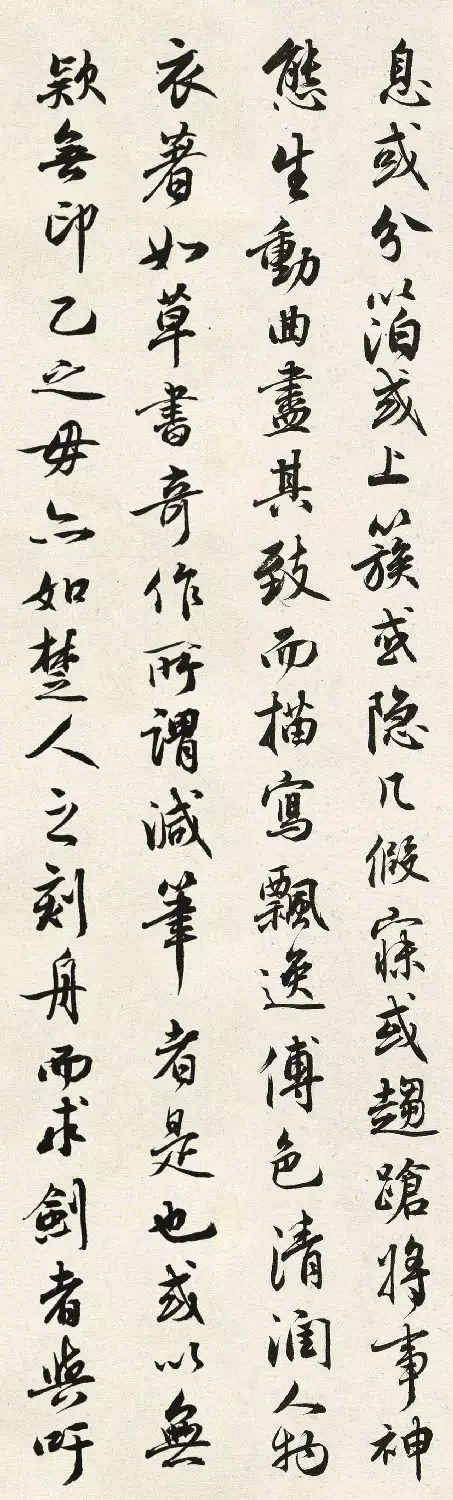 息或分箔或上簇或隐几假寐或趨蹌将事神
態生動曲盡其致而描寫飄逸傅色清润人物
衣著如草書奇作所謂減筆者是也或以無
款無印乙之毋亦如楚人之刻舟而求劍者與吁